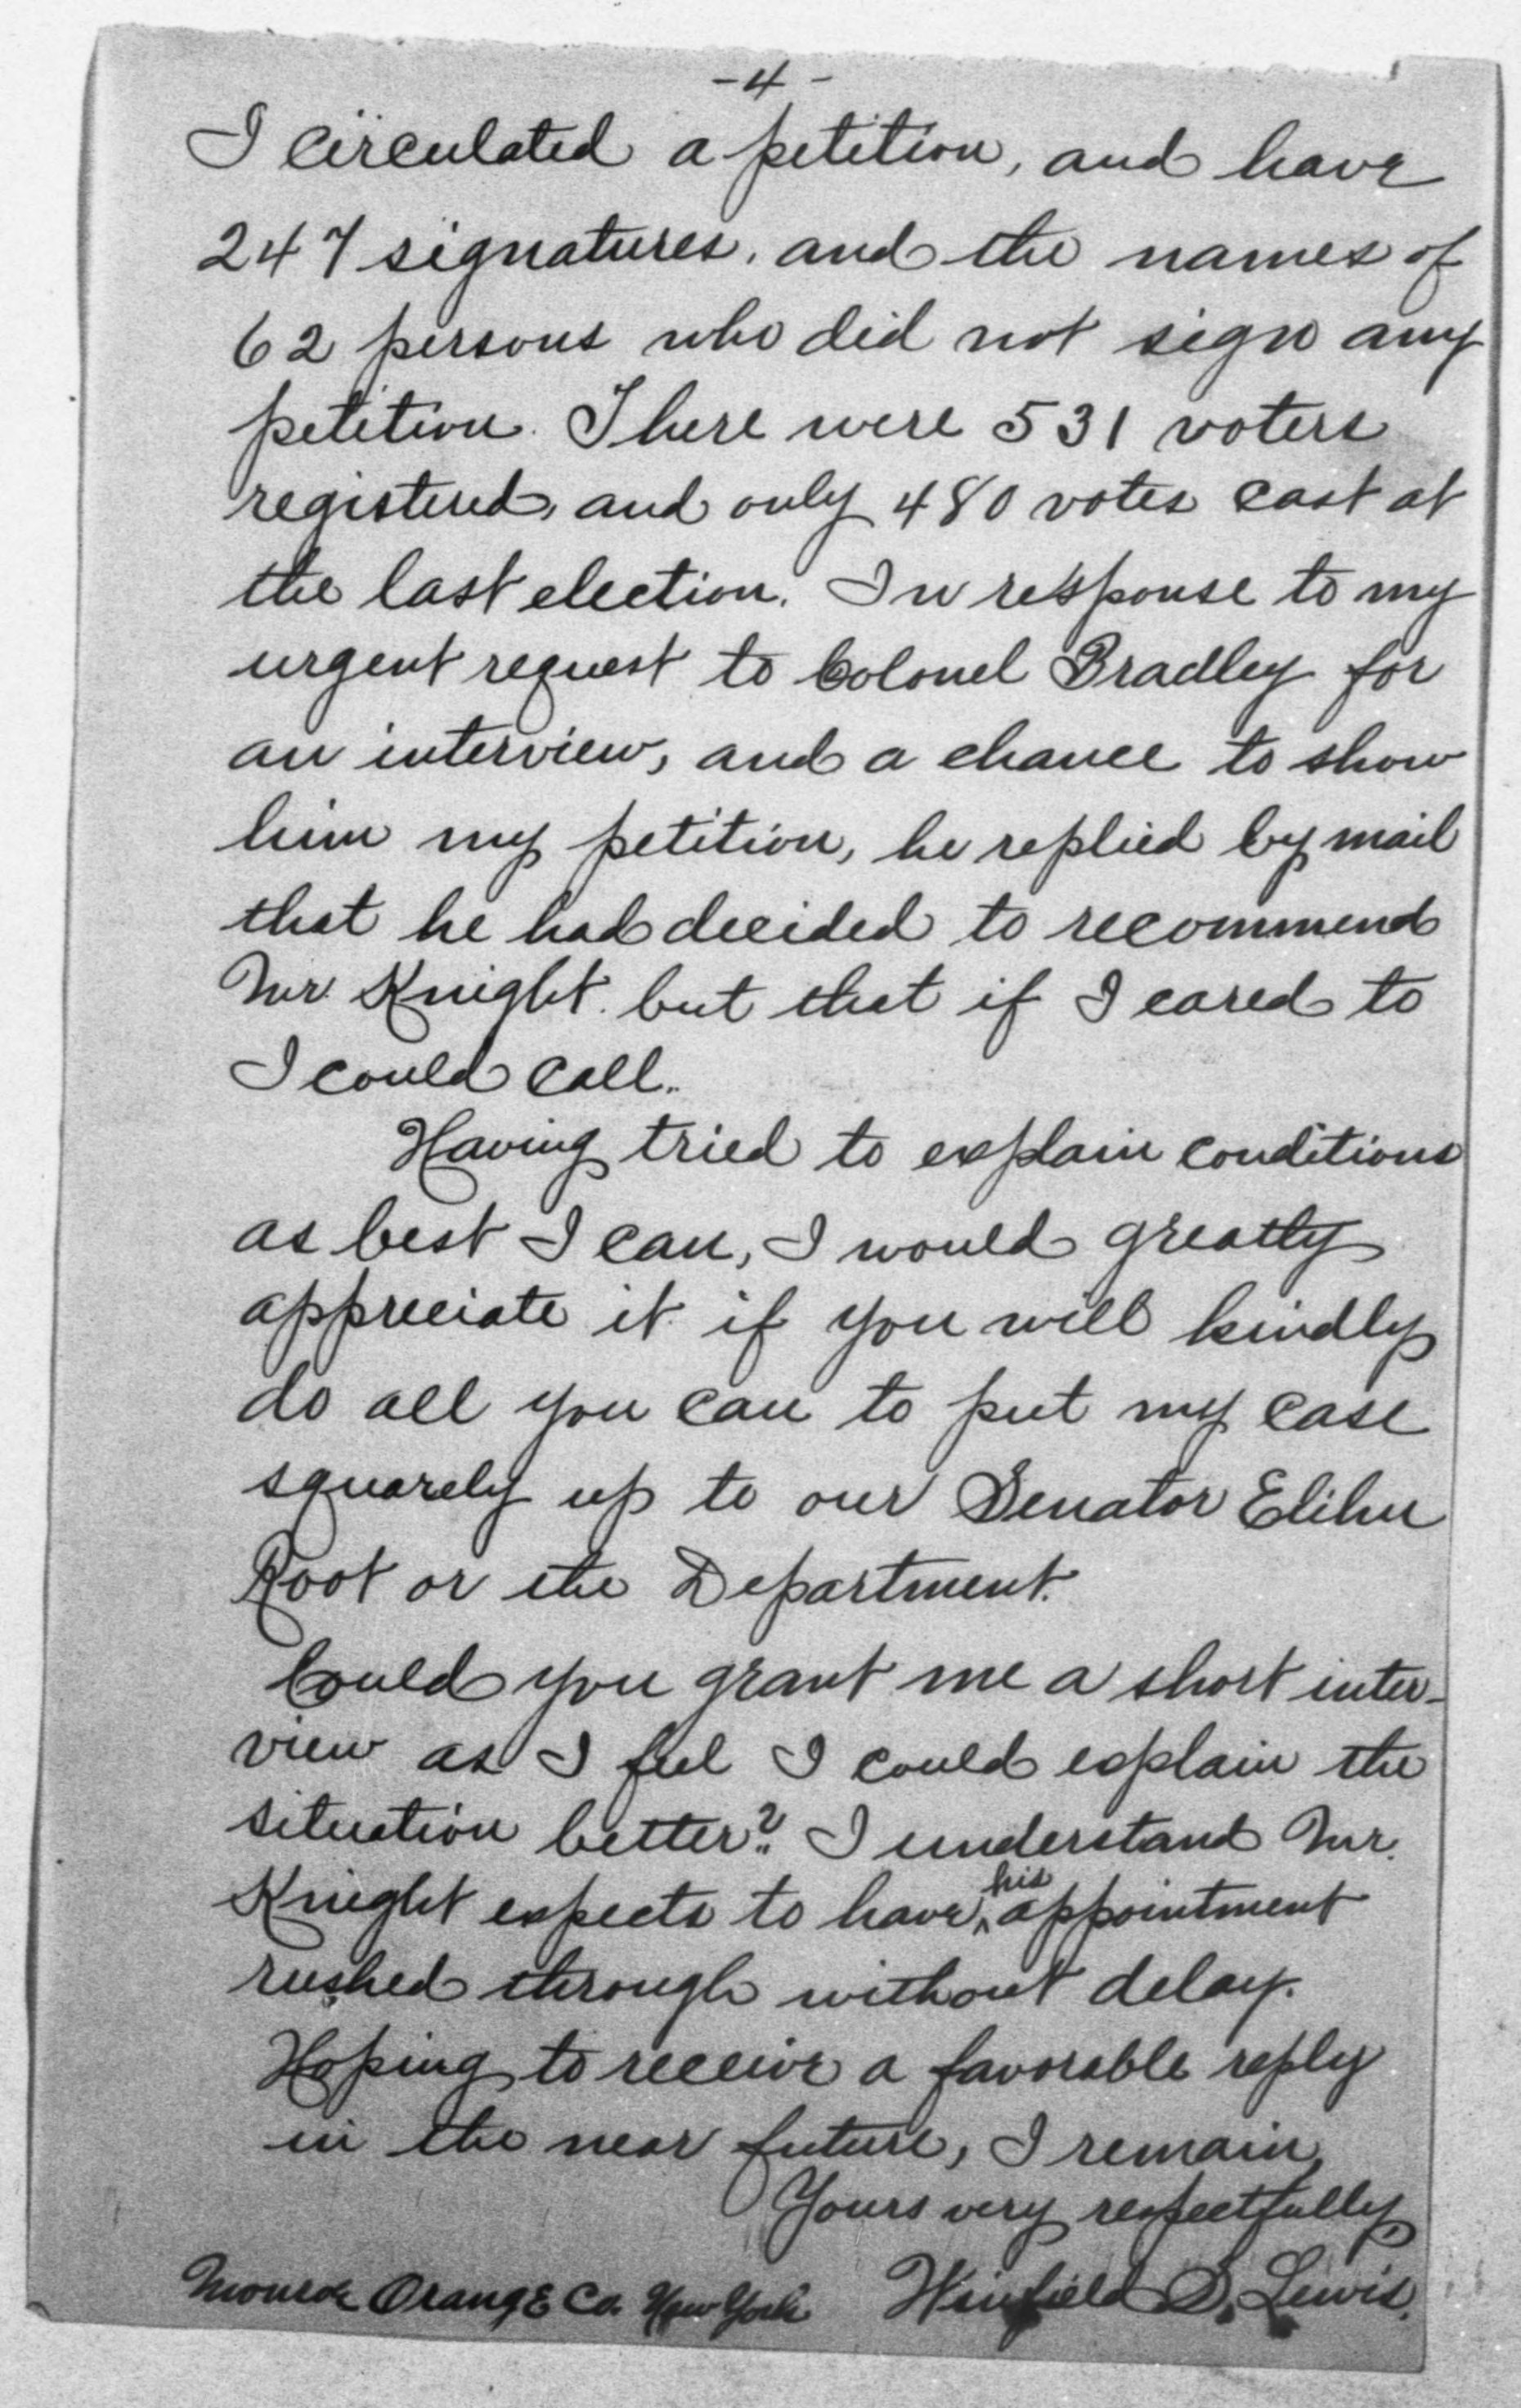 -4-
I circulated a petition, and have
247 signatures, and the names of
62 persons who did not sign any
petition. There were 531 voters
registered, and only 480 votes cast at
the last election. In response to my
urgent request to Colonel Bradley for
an interview, and a chance to show
him my petition, he replied by mail
that he had decided to recommend
Mr. Knight. but that if I cared to
I could call.
Having tried to explain conditions
as best I can, I would greatly
appreciate it if you will kindly
do all you can to put my case
squarely up to our Senator Elihu
Root or the Department.
Could you grant me a short inter-
view as I feel I could explain the
situation better? I understand Mr.
Knight expects to have his appointment
rushed through without delay.
Hoping to receive a favorable reply
in the near future, I remain,
Yours very respectfully,
Monroe Orange Co. New York Winfield S. Lewis.